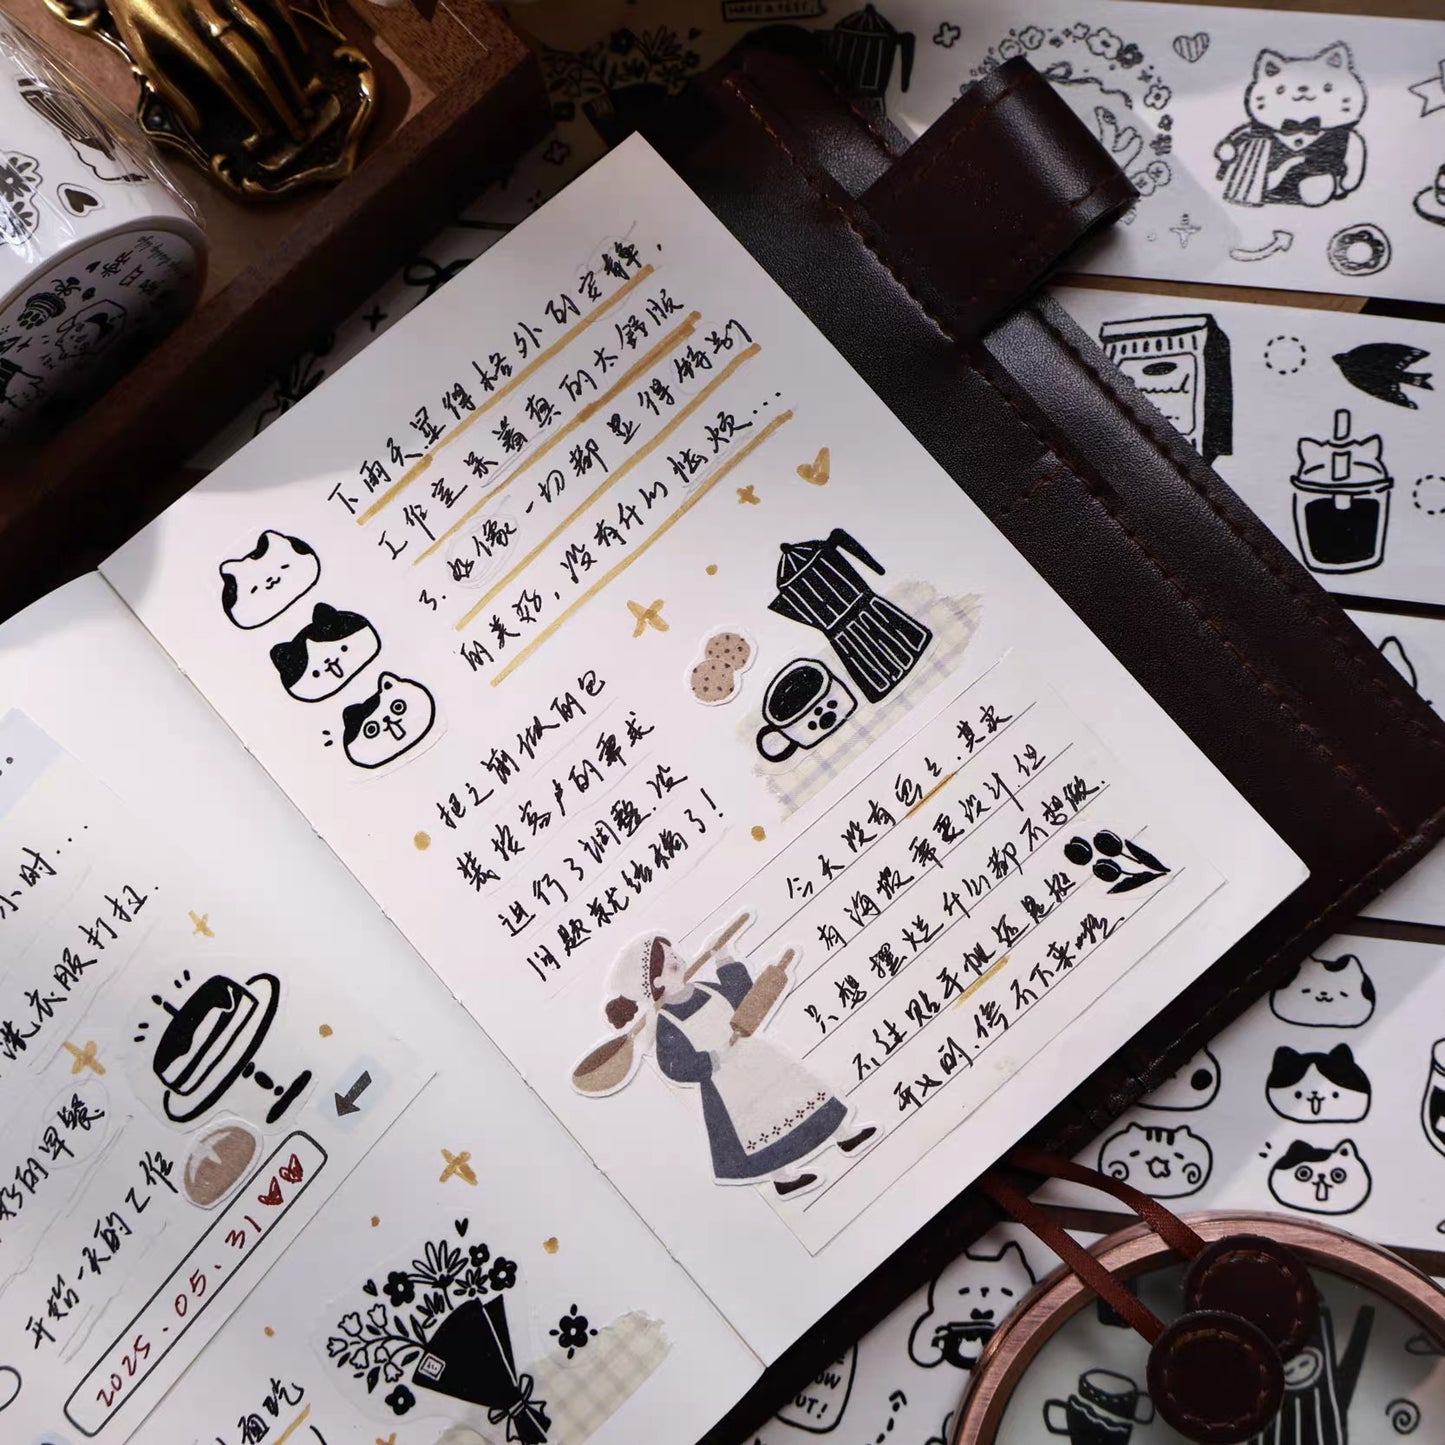 小时...
洗衣服打扫.
的早餐
开始一天的工作
2025.05.31
面吃
下雨天显得格外的安静,
工作室呆着真的太舒服
了.好像一切都显得特别
的美好,没有什么烦...
把之前做的包
装按客户的需求
进行了调整.没
问题就结稿了!
今天没有包包.其实
有海报需要设计.但
只想摆烂什么都不想做.
不过贴手帐还是挺
开心的.停不下来